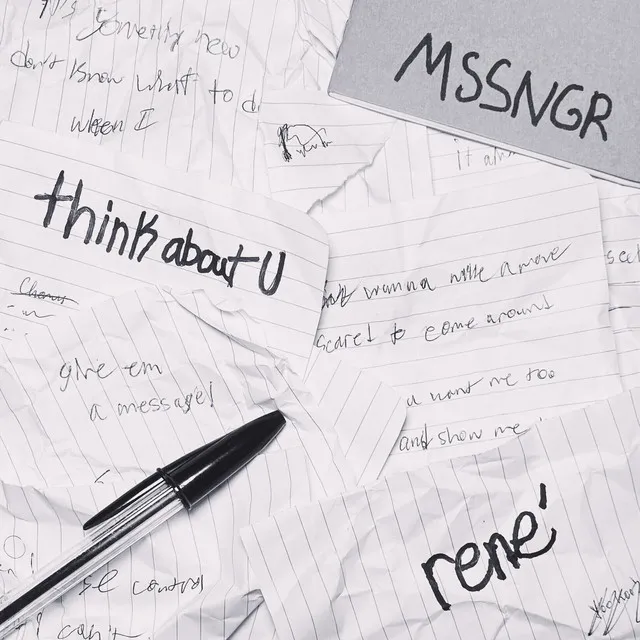 something new
don't know what to d
when I
MSSNGR
think about U
wanna make a move
scared to come around
u want me too
and show me
give em
a message!
rené
control
can't